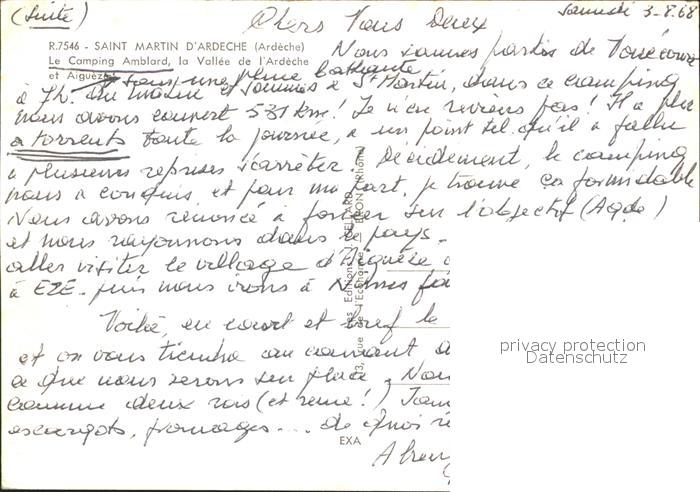 (Suite)
Samedi 3-8.68
Chers Vous Deux
R.7546 - SAINT MARTIN D'ARDECHE (Ardèche)
Le Camping Amblard, la Vallée de l'Ardèche
et Aiguèze
Nous sommes partis de
sous une pluie battante
à 7h. du matin et sommes à St Martin, dans ce camping
nous avons couvert 531 km! Je n'en reviens pas! Il a plu
à torrents toute la journée, à un point tel qu'il a fallu
à plusieurs reprises s'arrêter. Décidément, le camping
nous a conquis, et pour ma part, je trouve ça formidable
Nous avons renoncé à foncer sur l'objectif (Agde)
et nous rayonnons dans le pays.
aller visiter le village d'Aiguèze
à EZE. puis nous irons à
Voilà, en court et bref le
et on vous tiendra au courant
ce que nous ferons sur place. Nous
comme deux rois (et reine!)
escargots, fromages.... de quoi
Les Editions
rue de l'Economie
BRON (Rhône)
EXA
privacy protection
Datenschutz